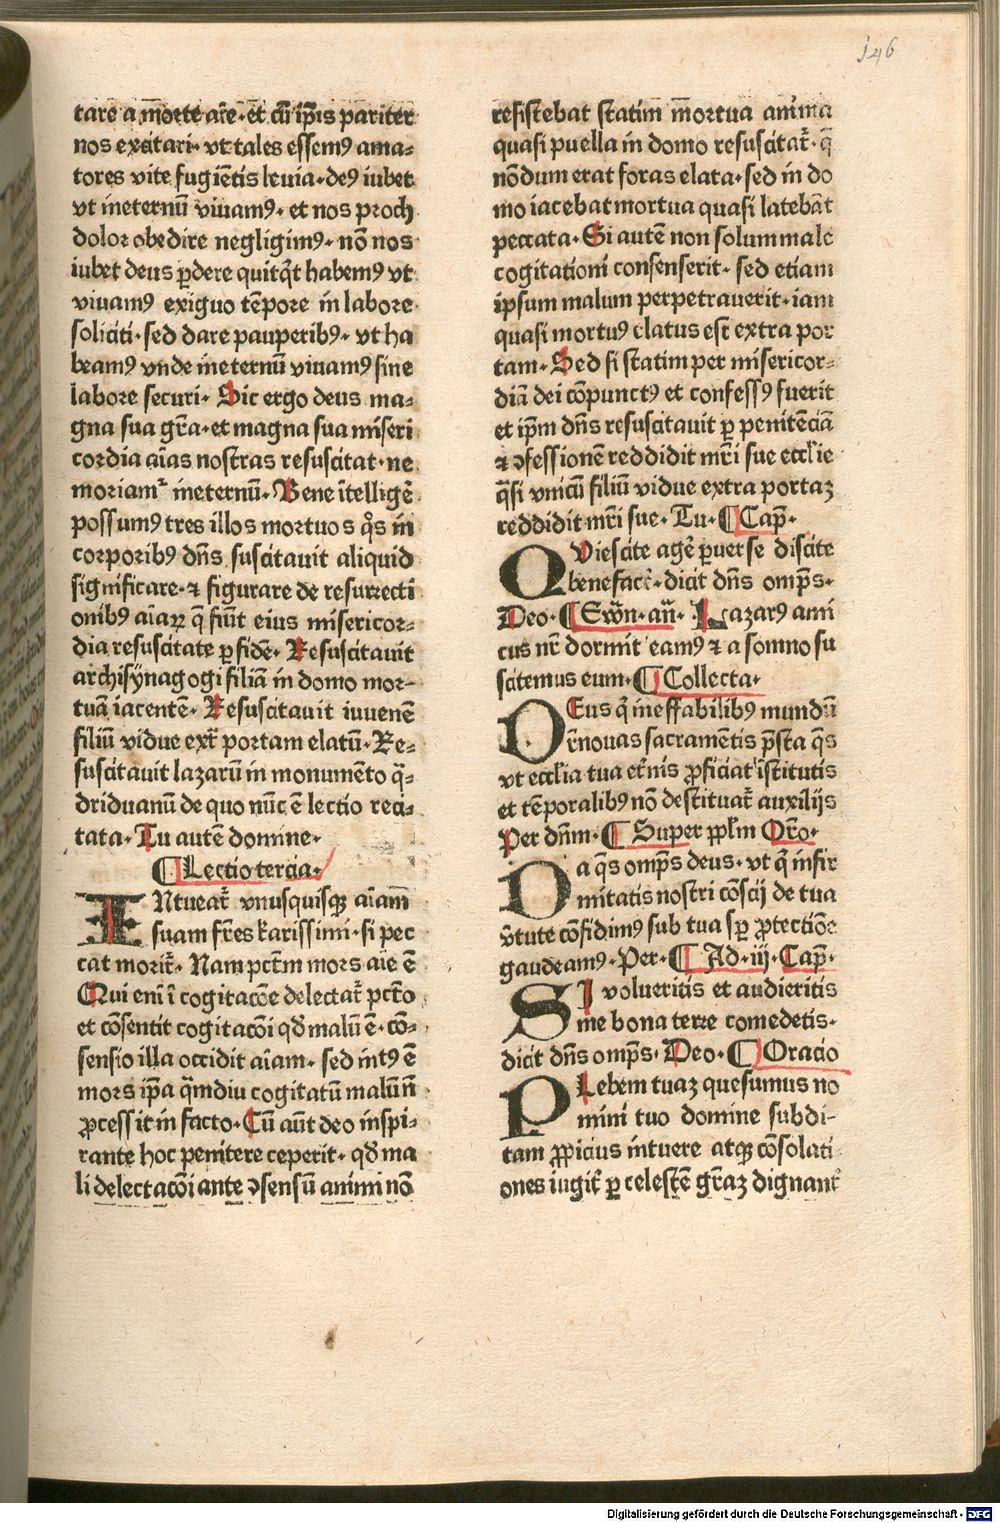 146
tare a morte aīe·et cū ip̄is pariter
nos excitari· vt tales essemꝰ ama⸗
tores vite fugiētis leuia·deꝰ iubet
vt ineternū viuamꝰ· et nos proch
dolor obedire negligimꝰ· nō nos
iubet deus ꝑdere quitq̄t habemꝰ vt
viuamꝰ exiguo tēpore in labore
soliciti·sed dare pauperibꝰ· vt ha
beamꝰ vnde ineternū viuamꝰ sine
labore securi· Sic ergo deus ma⸗
gna sua gr̄a·et magna sua miseri
cordia aīas nostras resuscitat·ne
moriamᷣ ineternū·Bene ītelligē
possumꝰ tres illos mortuos q̊s in
corporibꝰ dn̄s suscitauit aliquid
significare·⁊ figurare de resurrecti
onibꝰ aīaꝝ q̄ fiūt eius misericor⸗
dia resuscitate ꝑ fidē· Resuscitauit
archisynagogi filiā in domo mor⸗
tuā iacentē· Resuscitauit iuuenē
filiū vidue ext̄ portam elatū·Re⸗
suscitauit lazarū in monumēto q̄⸗
driduanū de quo nūc ē lectio reci⸗
tata·Tu autē domine·
¶Lectio tercia·
INtueat̄ vnusquisqꝫ aīam
suam fr̄es karissimi·si pec
cat morit̄· Nam pctm̄ mors aīe ē
Qui enī ī cogitacōe delectat̄ pctō
et cōsentit cogitacōi qd̄ malū ē·cō⸗
sensio illa occidit aīam· sed intꝰ ē
mors ip̄a q̄mdiu cogitatū malū n̄
ꝓcessit in facto·Cū aūt deo inspi⸗
rante hoc penitere ceperit· qd̄ ma
li delectacōi ante ꝯsensū animi nō
resistebat statim mortua anima
quasi puella in domo resuscitat̄·q̄
nōdum erat foras elata·sed in do
mo iacebat mortua quasi latebāt
peccata·Si autē non solum male
cogitationi consenserit· sed etiam
ipsum malum perpetrauerit·iam
quasi mortuꝰ elatus est extra por
tam·Sed si statim per misericor⸗
diā dei cōpunctꝰ et confessꝰ fuerit
et ip̄m dn̄s resuscitauit ꝑ penitēciā
⁊ ꝯfessionē reddidit mr̄i sue eccl̄ie
q̄si vnicū filiū vidue extra portaꝫ
reddidit mr̄i sue·Tu·¶Cap̄·
QViescite agē ꝑuerse discite
benefacē·dicit dn̄s omp̄s·
Deo·¶Ewn̄·an̄· Lazarꝰ ami
cus nr̄ dormit eamꝰ ⁊ a somno su
scitemus eum·¶Collecta·
DEus q̄ ineffabilibꝰ mundū
r̄nouas sacramētis p̄sta q̄s
vt eccl̄ia tua et̄nis ꝓficiat īstitutis
et tēporalibꝰ nō destituat̄ auxilijs
Per dn̄m·¶Super pp̄lm Or̄o·
Da q̄s omp̄s deus·vt q̄ infir
mitatis nostri cōscij de tua
v̄tute cōfidimꝰ sub tua sꝑ ꝓtectiōe
gaudeamꝰ·Per·¶Ad·iij·Cap̄·
SI volueritis et audieritis
me bona terre comedetis·
dicit dn̄s omp̄s·Deo·¶Oracio
PLebem tuaꝫ quesumus no
mini tuo domine subdi⸗
tam ꝓpicius intuere atqꝫ cōsolati
ones iugit̄ ꝑ celestē gr̄aꝫ dignant̄
Digitalisierung gefördert durch die Deutsche Forschungsgemeinschaft - DFG